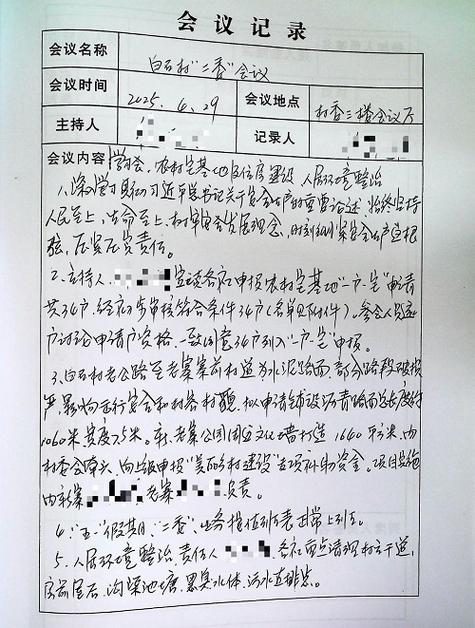 会议记录
会议名称 白石村“二委”会议
会议时间 2025.4.29 会议地点 村委二楼会议厅
主持人 记录人
会议内容 学习会、农村宅基地及住房建设、人居环境整治
1、深入学习贯彻习近平总书记关于安全生产的重要论述,始终坚持
人民至上、生命至上,树牢安全发展理念,时刻绷紧安全生产这根
弦,压实压实责任。
2、主持人 宣读各社申报农村宅基地“一户一宅”申请
共34户,经初步审核符合条件34户(名单见附件)。参会人员逐
户讨论申请户资格,一致同意34户列入“一户一宅”申报。
3、白石村老公路至老寨寨前村道为水泥路面,部分路段破损
严重,影响通行安全和村容村貌,拟申请铺设沥青路面总长度约
1060米,宽度7.5米。新、老寨公园围墙文化墙打造1660平方米,由
村委会牵头,向上级申报“美丽乡村建设”专项补助资金。项目实施
由新寨 老寨 负责。
4、“五一”假期“二委”业务按值班表正常上班。
5、人居环境整治,责任人 各社重点清理村主干道、
房前屋后、沟渠池塘、黑臭水体、污水直排点。